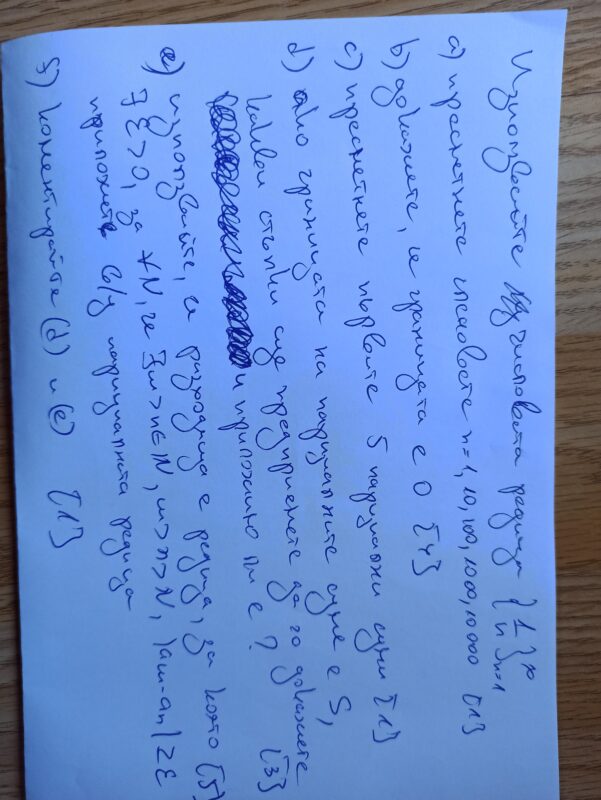 Използвайте числовата редица {1/n}∞n=1
a) пресметнете членовете n=1,10,100,1000,10000 [1]
b) докажете, че границата е 0 [4]
c) пресметнете първите 5 парциални суми [1]
d) ако границата на парциалните суми е S,
какви стъпки ще предприемете да го докажете
и приложимо ли е? [3]
e) използвайте, че разходяща е редица, за която [5]
∃ε>0, за ∀N, че ∃m>n∈N, m>n>N, |am-an|≥ε
приложете в/у парциалната редица
f) коментирайте (d) и (e) [1]